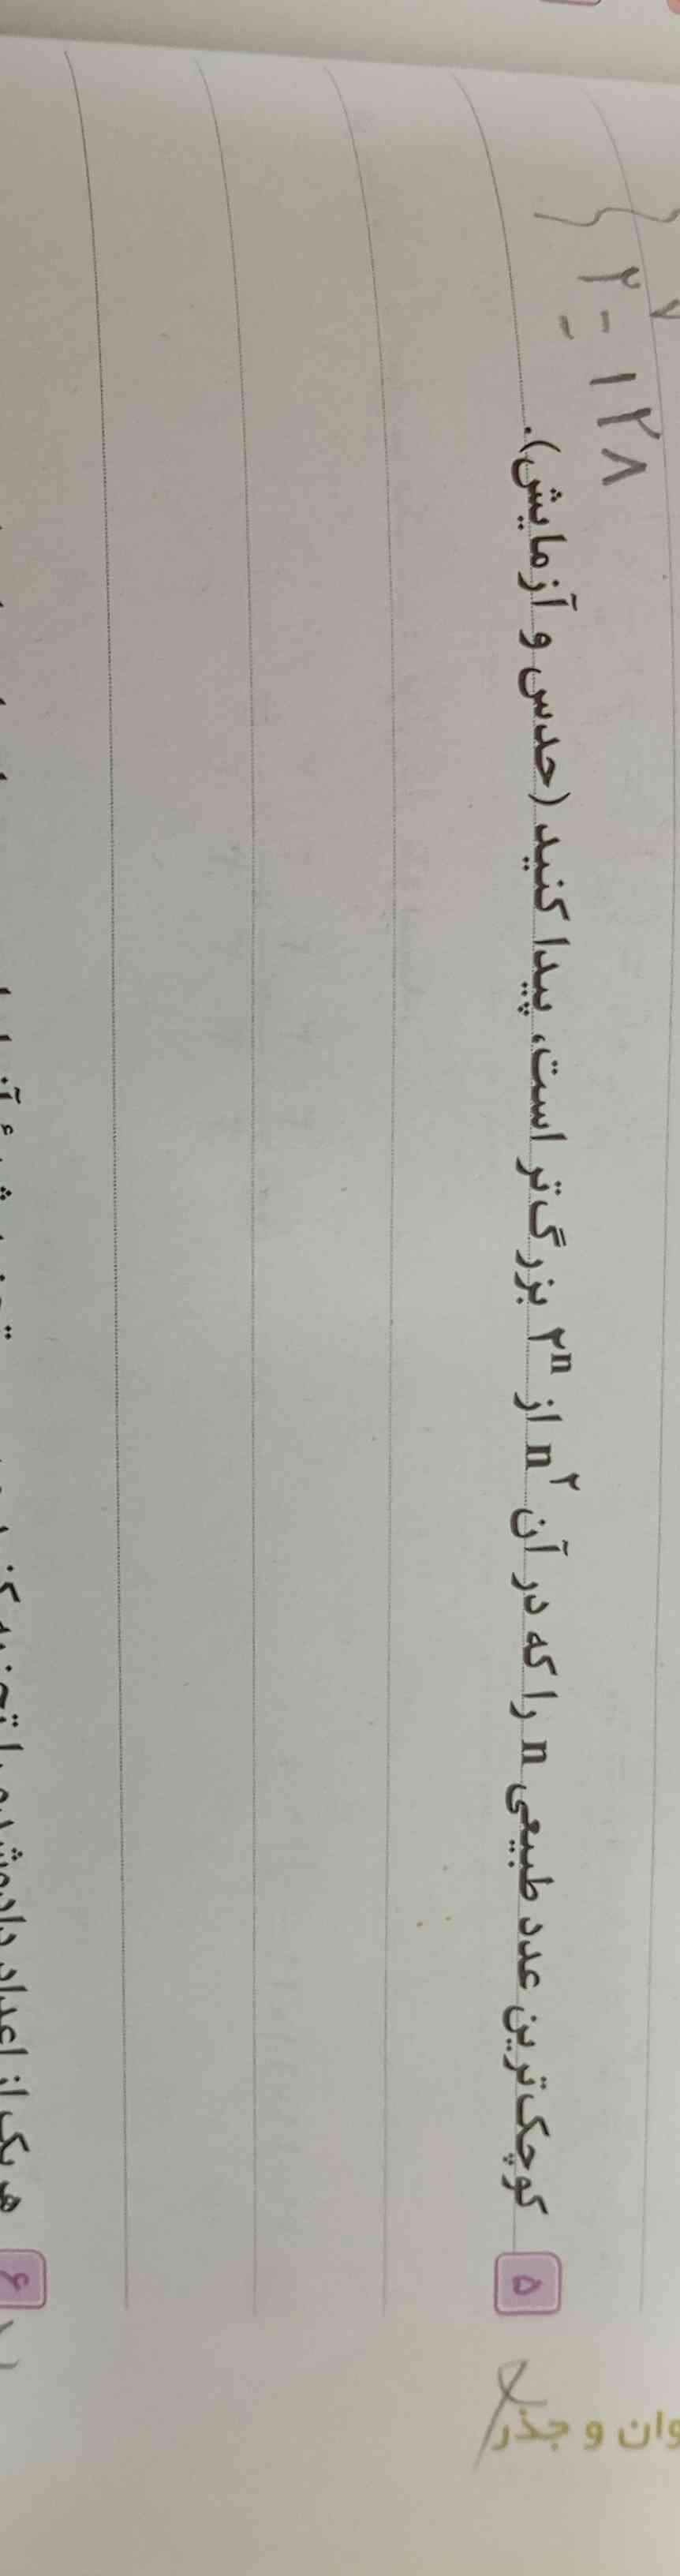 وان و جذر
۲^۷ = ۱۲۸
۵ کوچک‌ترین عدد طبیعی n را که در آن n^۲ از ۲^n بزرگ‌تر است، پیدا کنید (حدس و آزمایش).
۶ هر یک از اعداد داده‌شده را تجزیه